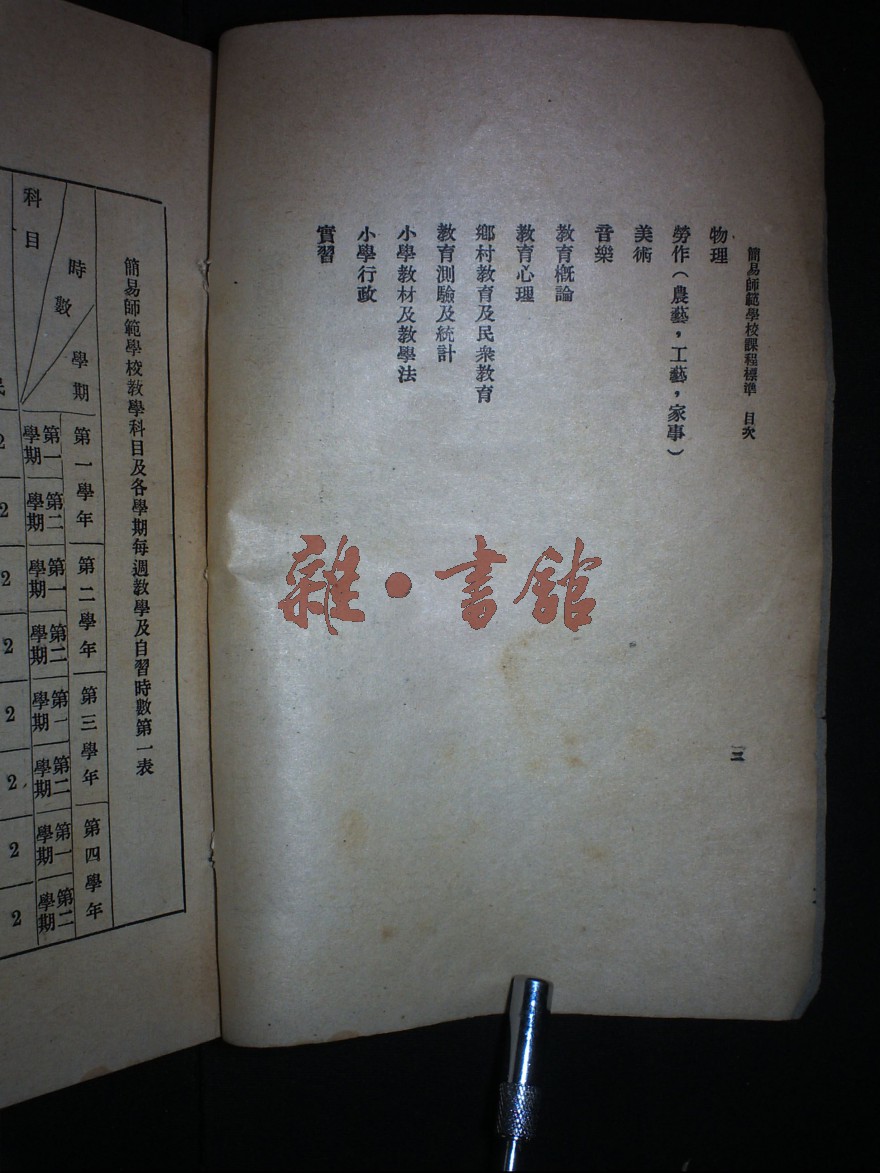 簡易師範學校課程標準 目次
物理
勞作(農藝,工藝,家事)
美術
音樂
教育概論
教育心理
鄉村教育及民衆教育
教育測驗及統計
小學教材及教學法
小學行政
實習
三
雜·書館
簡易師範學校教學科目及各學期每週教學及自習時數第一表
學期
時數
科目
第一學年
第二學年
第三學年
第四學年
第一學期
第二學期
第一學期
第二學期
第一學期
第二學期
第一學期
第二學期
民
2
2
2
2
2
2
2
2